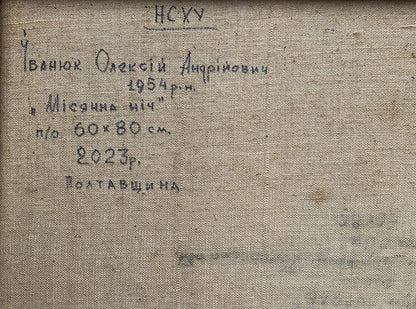 НСХУ
Іванюк Олексій Андрійович
1954 р.н.
„Місячна ніч"
п/о 60×80 см.
2023р.
Полтавщина